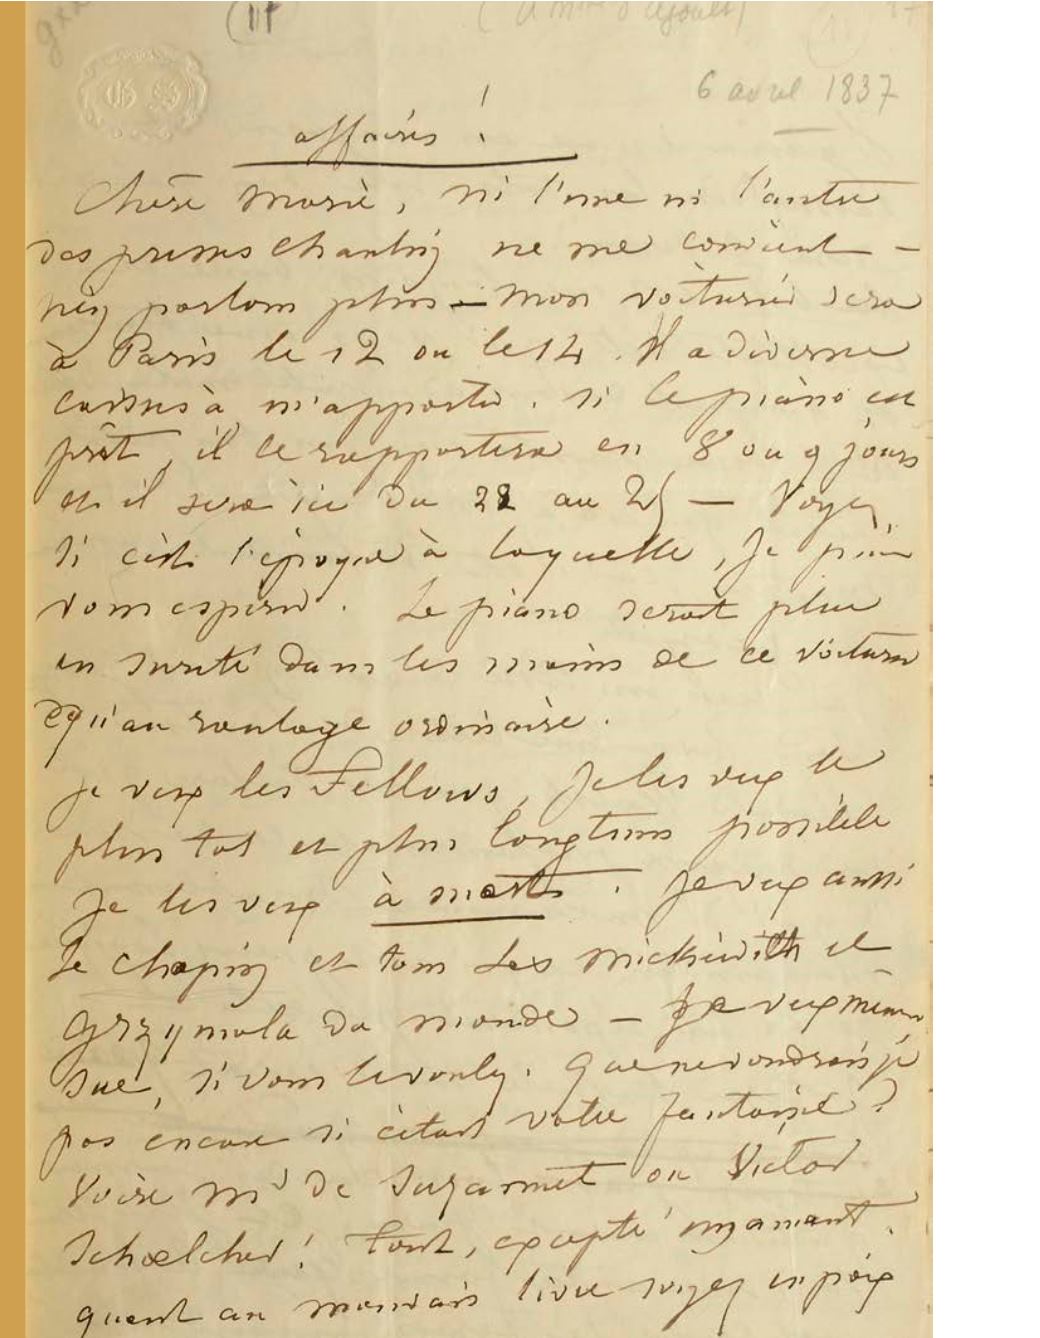 (11
(à Mme d'Agoult)
(11)
GS
6 avril 1837
affaires !
Chère Marie, ni l'une ni l'autre
des primes Chantin ne me convient –
n'en parlons plus – Mon voiturier sera
à Paris le 12 ou le 14. Il a diverses
caisses à m'apporter. Si le piano est
prêt, il le rapportera en 8 ou 9 jours
et il sera ici du 22 au 25 — Voyez
si c'est l'époque à laquelle, je puis
vous espérer. Le piano serait plus
en sureté dans les mains de ce voiturier
qu'au roulage ordinaire.
je veux les Fellows, je les veux le
plus tot et plus longtems possible
Je les veux à mort. Je veux aussi
le chopin et tous les Mickiewith et
Grzymala du monde — Je veux même
Sue, si vous le voulez. Que ne voudrais je
pas encore si c'était votre fantaisie ?
Voire Mr de Suzannet ou Victor
Schœlcher ! Tout, excepté un amant.
quant au mauvais livre soyez en paix